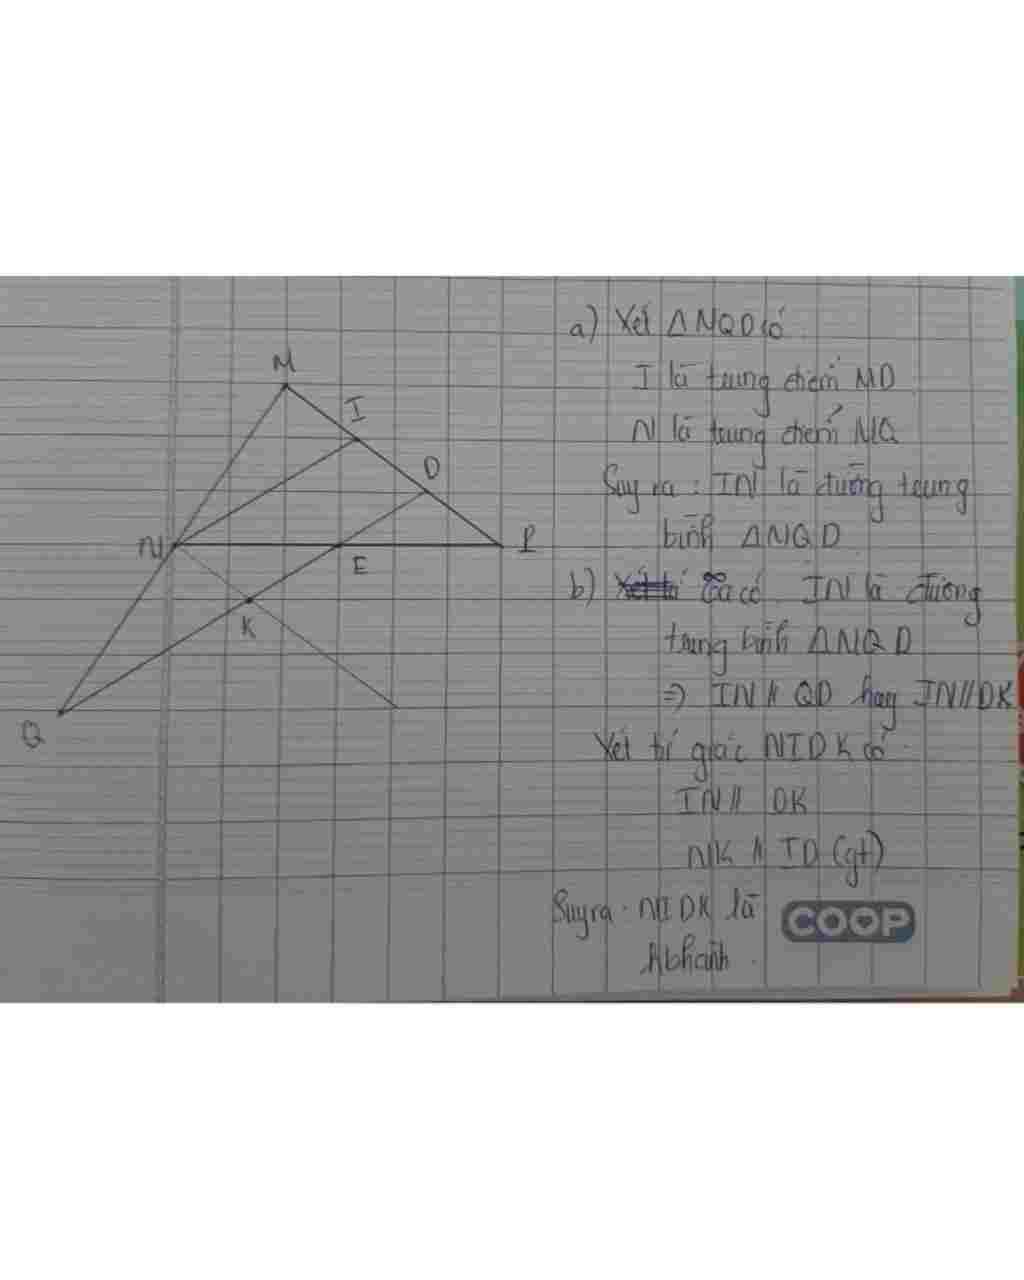 M
I
D
N
E
P
K
Q
a) Xét △NQD có
I là trung điểm MD
N là trung điểm MQ
Suy ra : IN là đường trung
bình △NQD
b) Ta có IN là đường
trung bình △NQD
=> IN // QD hay IN // DK
Xét tứ giác NIDK có
IN // DK
NK // ID (gt)
Suy ra NIDK là
hbhành .
COOP